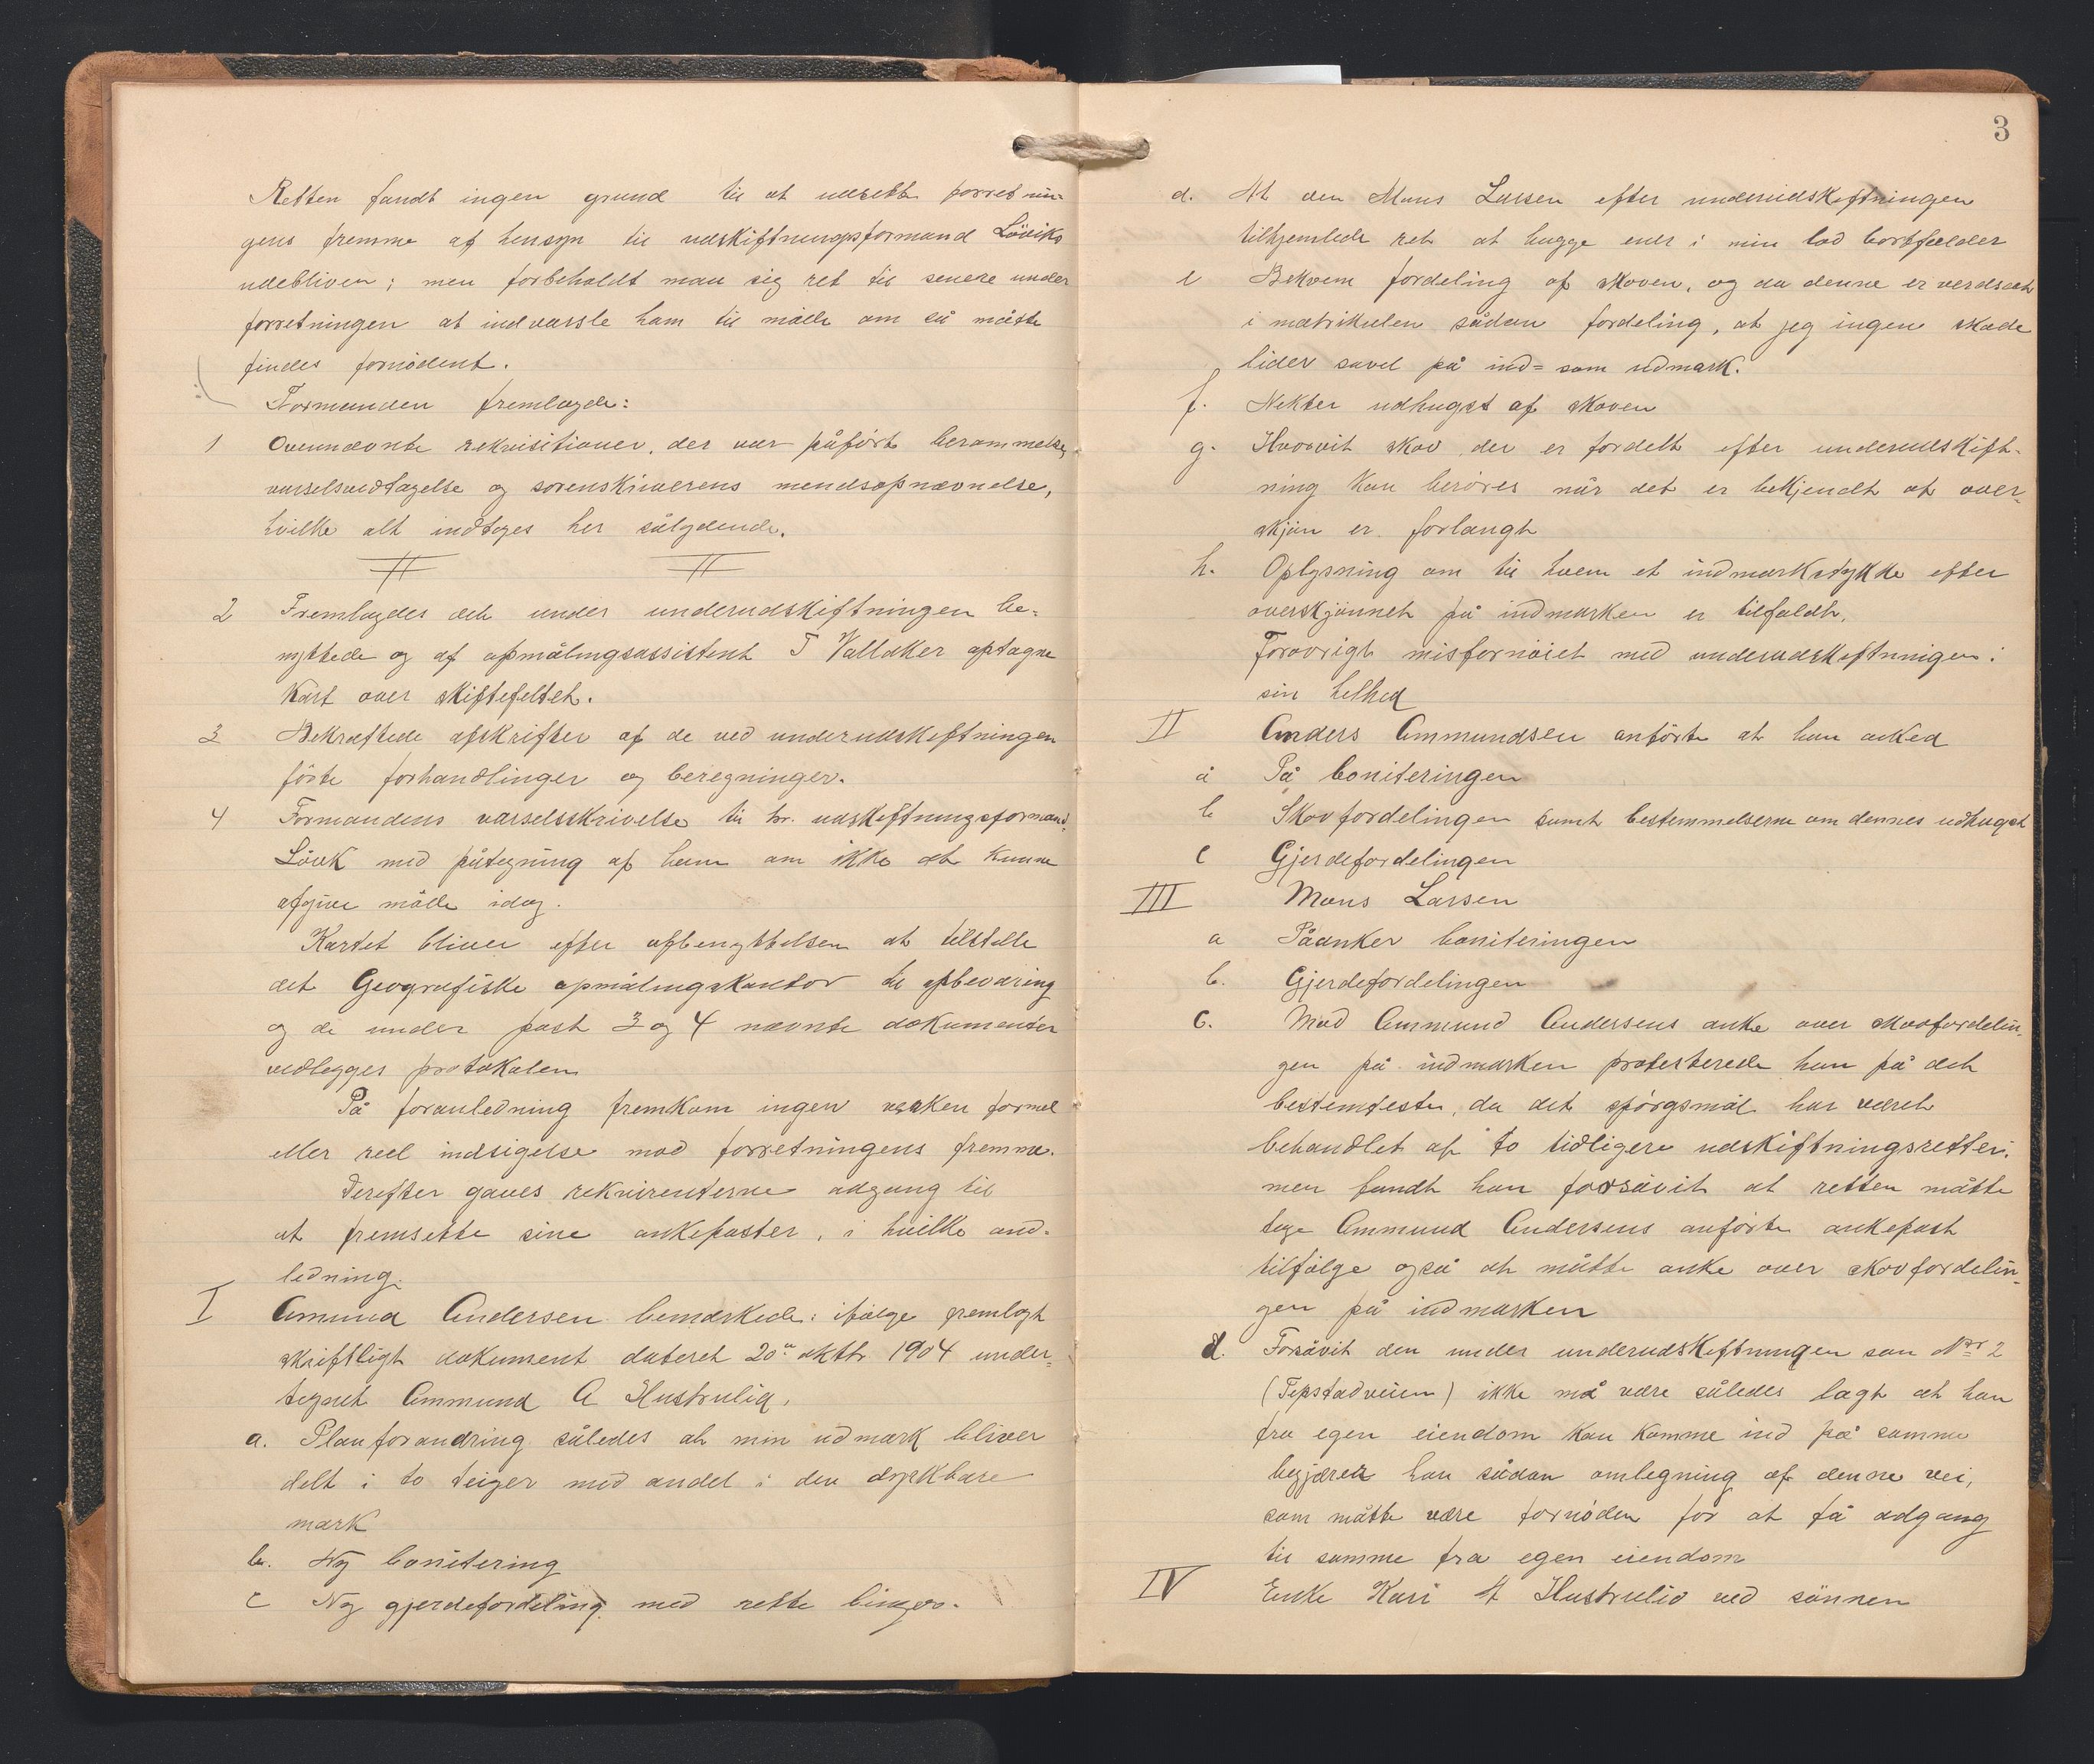 Retten fandt ingen grund til at udsette forretnin-
gens fremme af hensyn til udskiftningsformand Löviks
udebliven; men forbeholdt man sig ret til senere under
forretningen at indvarsle ham til måtte om så måtte
findes fornødent.
Formanden fremlagde:
1 Ovennævnte rekvisitioner, der var påført berammelse,
varselsvedtagelse og sorenskriverens mendsopnævnelse,
hvilke alt indtages her sålydende.
2 Fremlagdes det under underudskiftningen be-
nyttede og af opmålingsassistent T Vallaker optagne
Kart over skiftefeltet.
3 Bekræftede afskrifter af de ved underudskiftningen
förte forhandlinger og beregninger.
4 Formandens varselsskrivelse til hr. udskiftningsformand
Lövik med påtegning af ham om ikke at kunne
afgive måtte idag.
Kartet bliver efter afbenyttelsen at tilstille
det Geografiske opmålingskontor til opbevaring
og de under post 3 og 4 nævnte dokumenter
vedlegges protokolen
På foranledning fremkom ingen værken formel
eller reel indsigelse mod forretningens fremme.
Derefter gaves rekvirenterne adgang til
at fremsette sine ankeposter, i hvilke and-
ledning.
I Amund Andersen bemærkede: ifølge fremlagt
skriftligt dokument dateret 20de oktbr 1904 under-
tegnet Ammund A Hustrulid,
a. Planforandring således at min udmark bliver
delt i to teiger med andel i den dyrkbare
mark
b. Ny bonitering
c Ny gjerdefordeling med rette linjer.
3
d. At den Mons Larsen efter underudskiftningen
tilkjendede ret at hugge ener i min lod bortfælder
e Bekvem fordeling af skoven, og da denne er verdsæt
i matrikulen sådan fordeling, at jeg ingen skade
lider savel på ind= som udmark.
f. Nekter udhugst af skoven
g. Hvorvit skov der er fordelt efter underudskift-
ning kan berøres når det er bekjendt at over-
skjön er forlangt
h. Oplysning om til hvem et indmarkstykke efter
overskjönnet på indmarken er tilfaldt.
Forøvrigt misfornöiet med underudskiftningen i
sin helhed
II Anders Ammundsen anförte at han anked
a På boniteringen
b Skovfordelingen samt bestemmelserne om dennes udhugst
c Gjerdefordelingen
III Mons Larsen
a Påanker boniteringen
b. Gjerdefordelingen
c. Mod Ammund Andersens anke over skovfordelin-
gen på indmarken protesterede han på det
bestemteste, da det spörgsmål har været
behandlet af to tidligere udskiftningsretter,
men fandt han forsåvit at retten måtte
tage Ammund Andersens anförte ankepost
tilfölge også at måtte anke over skovfordelin-
gen på indmarken
d. Forsåvit den under underudskiftningen som No 2
(Tepstadveien) ikke må være således lagt at han
fra egen eiendom kan komme ind på samme
begjærer han sådan omlegning af denne vei,
som måtte være fornöden for at få adgang
til samme fra egen eiendom
IV Enke Kari A Hustrulid ved sönnen